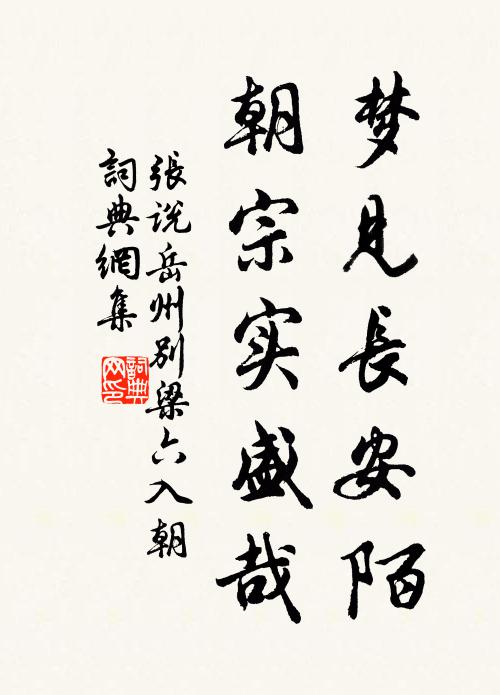 梦见長安陌
朝宗实盛哉
張说岳州别梁六入朝
詞典網集
詞典网印